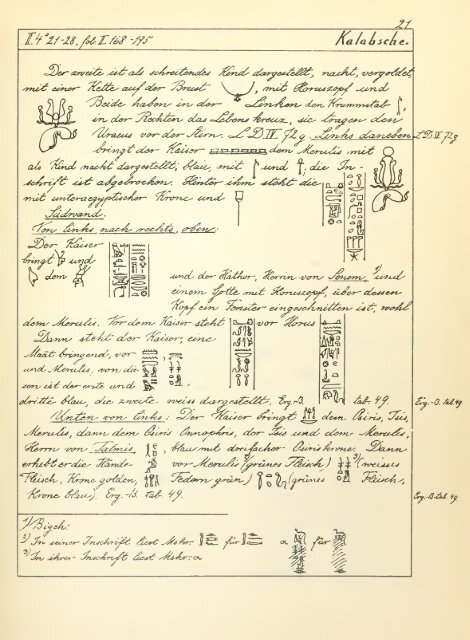 21
II.4° 21-28, fol II.168-195 Kalabsche.
Der zweite ist als schreitendes Kind dargestellt, nackt, vergoldet,
mit einer Kette auf der Brust , mit Horuszopf und
Beide haben in der Linken den Krummstab ,
in der Rechten das Lebenskreuz, sie tragen den
Uraeus vor der Stirn. L.D.IV.72g. Links daneben L.D.IV.72g
bringt der Kaiser dem Merulis mit
als Kind nackt dargestellt, blau, mit und ; die In-
schrift ist abgebrochen. Hinter ihm steht die
mit unteraegyptischer Krone und
Südwand.
Von links nach rechts, oben:
Der Kaiser
bringt und
dem und der Hathor, Herrin von Senem 1) und
einem Gotte mit Horuszopf, über dessen
Kopf ein Fenster eingeschnitten ist, wohl
dem Merulis. Vor dem Kaiser steht vor Horus
Dann steht der Kaiser, eine
Maât bringend, vor
und Merulis, von die-
sen ist der erste und
dritte blau, die zweite weiss dargestellt. Erg.-B. tab. 49. Erg.-B. tab. 49
Unten von links: Der Kaiser bringt dem Osiris, Isis,
Merulis, dann dem Osiris Onnophris, der Isis und dem Merulis,
Herrn von Talmis, , blau mit dreifacher Osiriskrone. Dann
erhebt er die Hände vor Merulis (grünes Fleisch) 3) (weisses
Fleisch, Krone golden, Federn grün) (grünes Fleisch,
Krone blau). Erg.-B. tab. 49. Erg.-B. tab. 49
1) Bigeh.
2) In seiner Inschrift liest Mohr. für
3) In ihrer Inschrift liest Mohr. a für